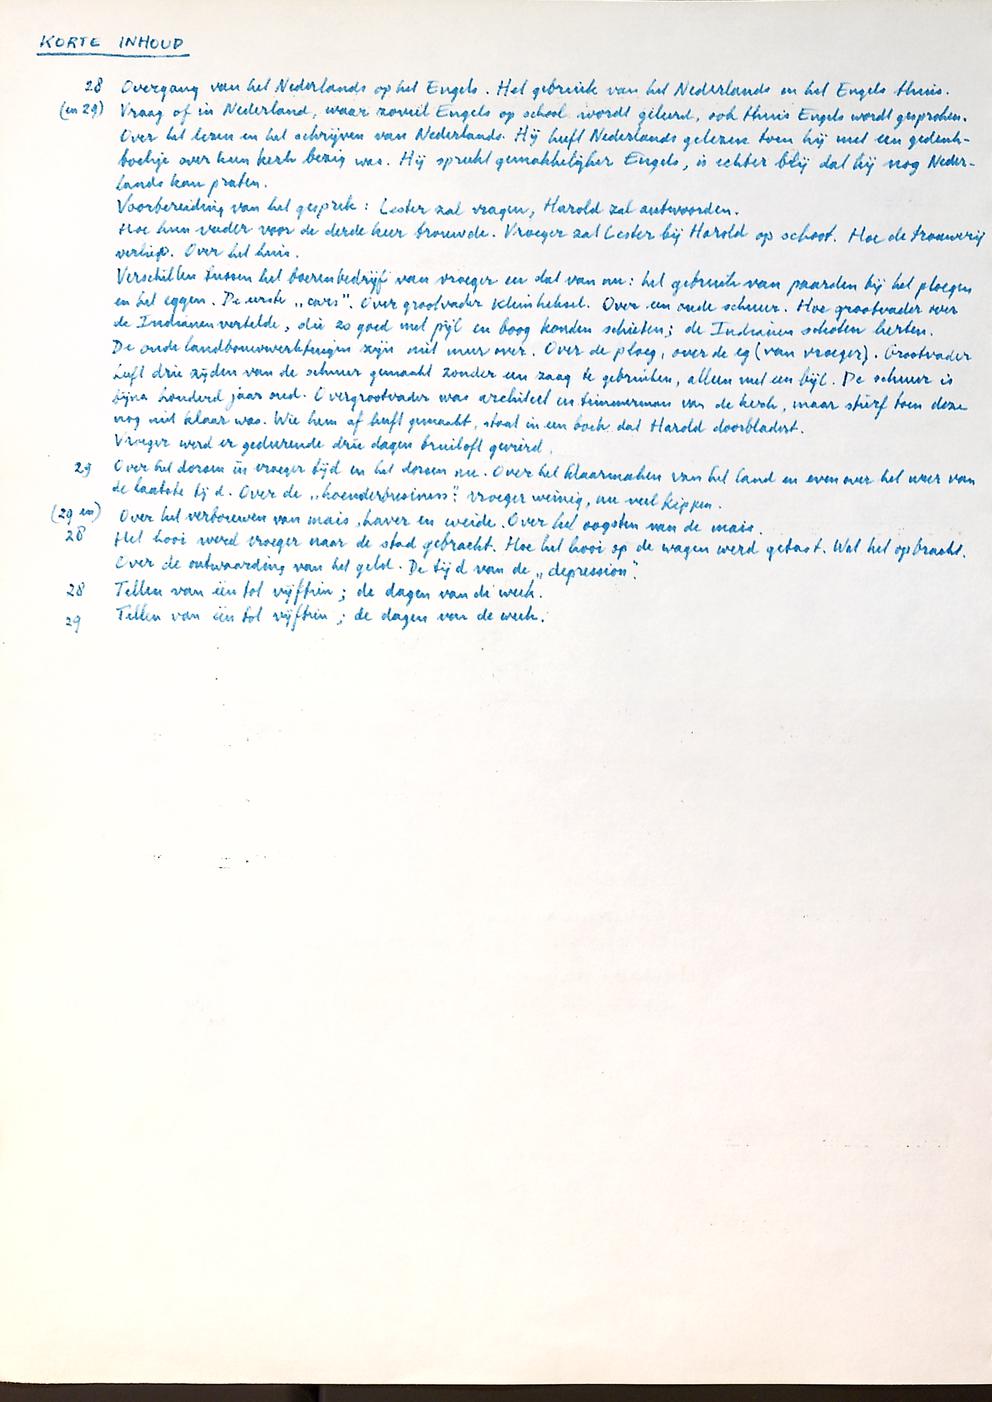 KORTE INHOUD
28 Overgang van het Nederlands op het Engels. Het gebruik van het Nederlands en het Engels thuis.
(en 29) Vraag of in Nederland, waar zoveel Engels op school wordt geleerd, ook thuis Engels wordt gesproken.
Over het lezen en het schrijven van Nederlands. Hij heeft Nederlands gelezen toen hij met een gedenk-
boekje over hun kerk bezig was. Hij spreekt gemakkelijker Engels, is echter blij dat hij nog Neder-
lands kan praten.
Voorbereiding van het gesprek: Lester zal vragen, Harold zal antwoorden.
Hoe hun vader voor de derde keer trouwde. Vroeger zat Lester bij Harold op school. Hoe de trouwerij
verliep. Over het huis.
Verschillen tussen het boerenbedrijf van vroeger en dat van nu: het gebruik van paarden bij het ploegen
en het eggen. De eerste „cars”. Over grootvader Kleinheksel. Over een oude schuur. Hoe grootvader over
de Indianen vertelde, die zo goed met pijl en boog konden schieten; de Indianen schoten herten.
De oude landbouwwerktuigen zijn niet meer over. Over de ploeg, over de eg (van vroeger). Grootvader
heeft drie zijden van de schuur gemaakt zonder een zaag te gebruiken, alleen met een bijl. De schuur is
bijna honderd jaar oud. Overgrootvader was architect en timmerman van de kerk, maar stierf toen deze
nog niet klaar was. Wie hem af heeft gemaakt, staat in een boek dat Harold doorbladert.
Vroeger werd er gedurende drie dagen bruiloft gevierd.
29 Over het dorsen in vroeger tijd en het dorsen nu. Over het klaarmaken van het land en even over het weer van
de laatste tijd. Over de „hoenderbusiness”: vroeger weinig, nu veel kippen.
(29 en) Over het verbouwen van mais, haver en weide. Over het oogsten van de mais.
28 Het hooi werd vroeger naar de stad gebracht. Hoe het hooi op de wagen werd getast. Wat het opbracht.
Over de ontwaarding van het geld. De tijd van de „depression”.
28 Tellen van één tot vijftien; de dagen van de week.
29 Tellen van één tot vijftien; de dagen van de week.